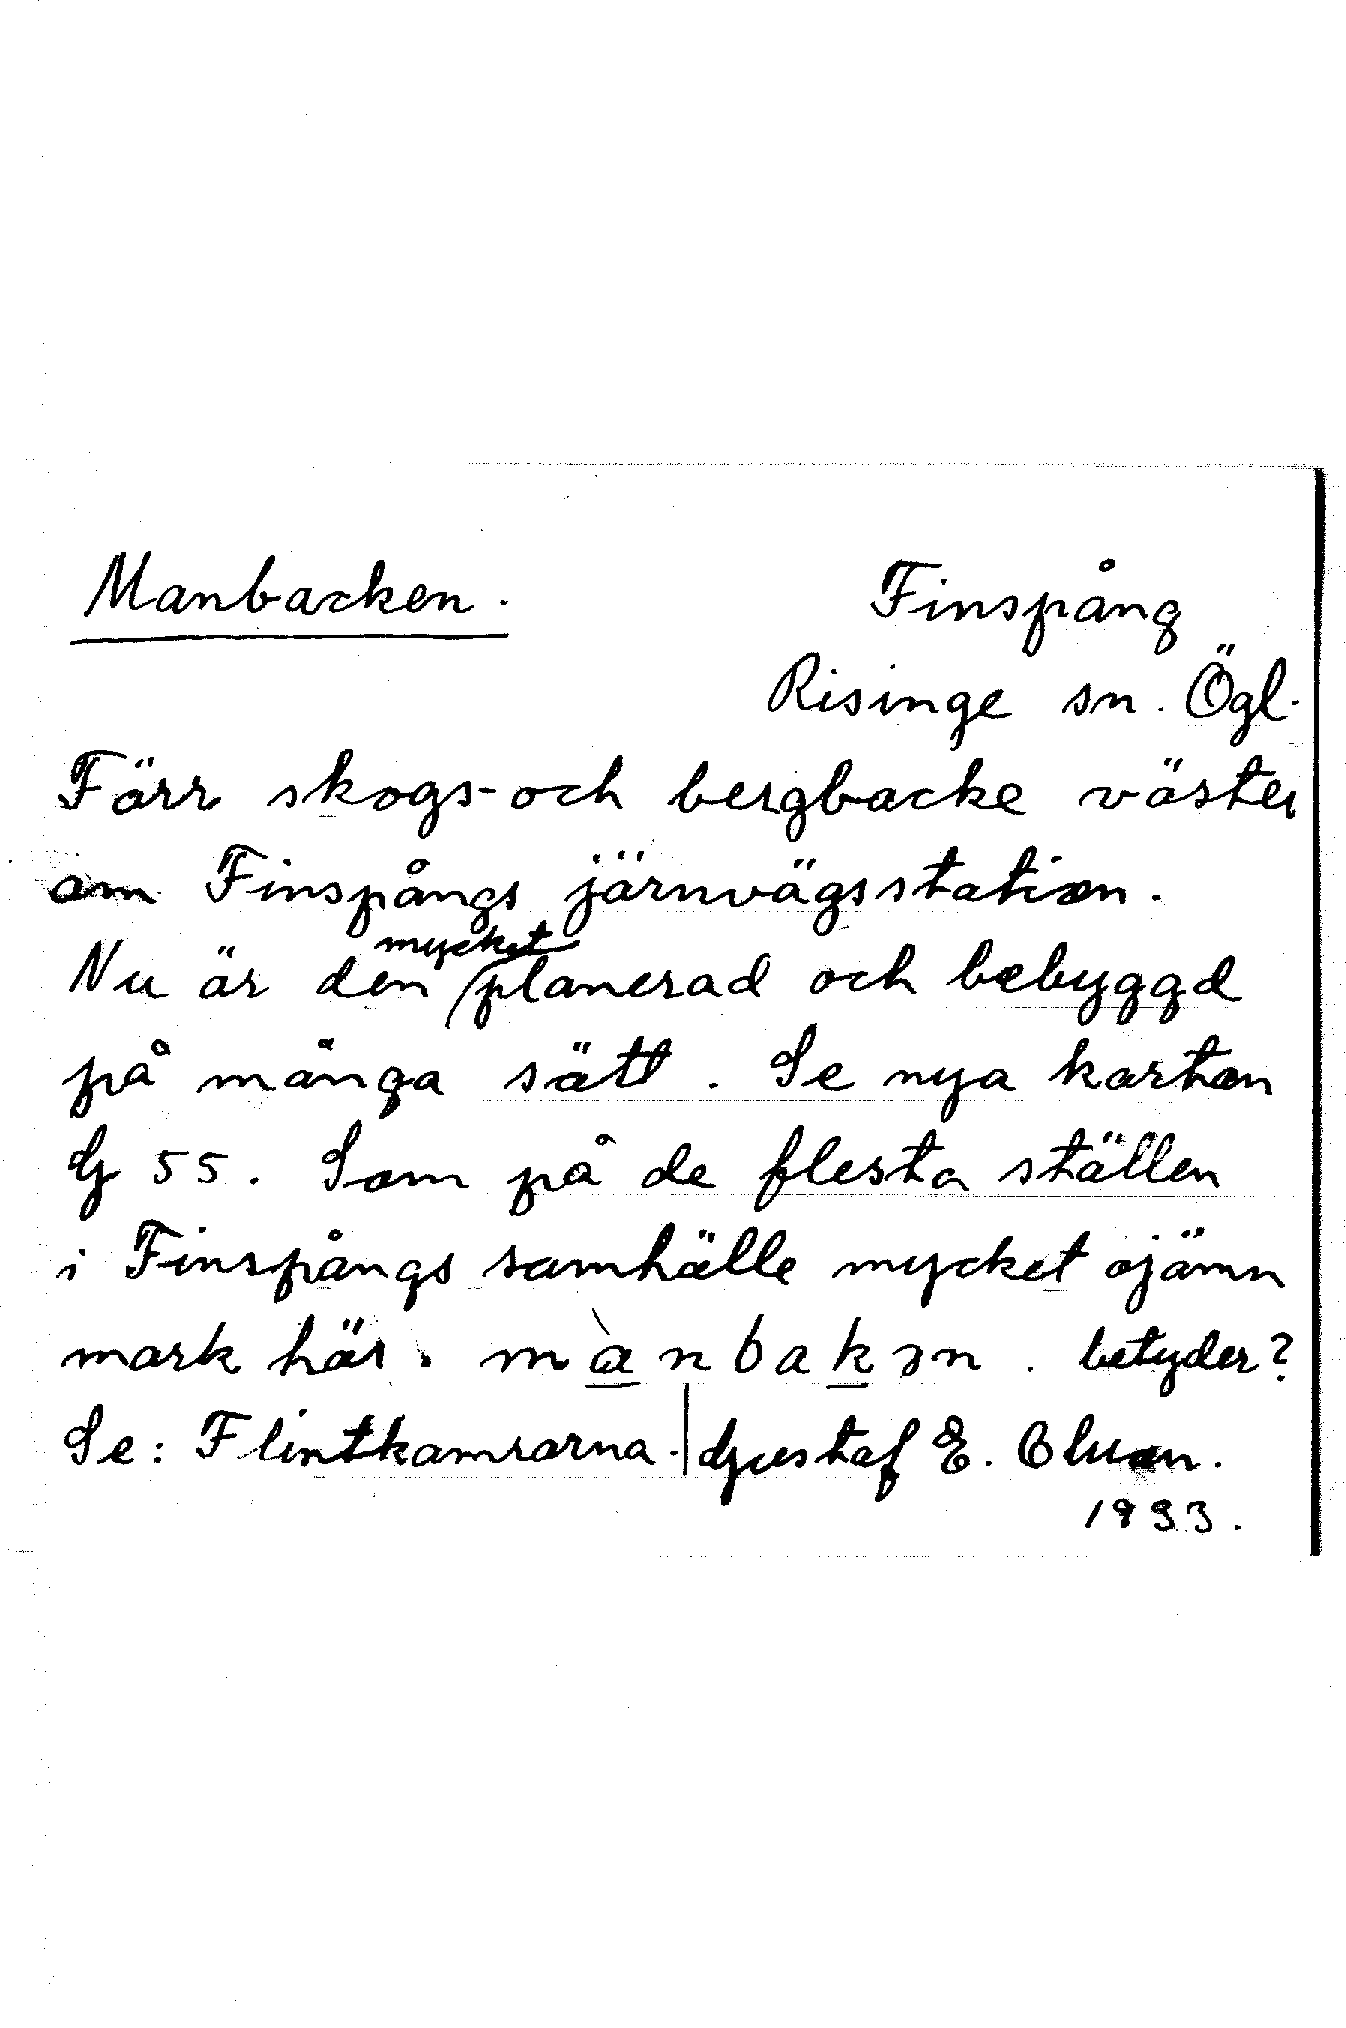 Manbacken.
Finspång
Risinge sn. Ögl.
Förr skogs- och bergbacke väster
om Finspångs järnvägsstation.
Nu är den mycket planerad och bebyggd
på många sätt. Se nya kartan
G 55. Som på de flesta ställen
i Finspångs samhälle mycket ojämn
mark här. mànbakən. betyder?
Se: Flintkamrarna. Gustaf E.
1933.